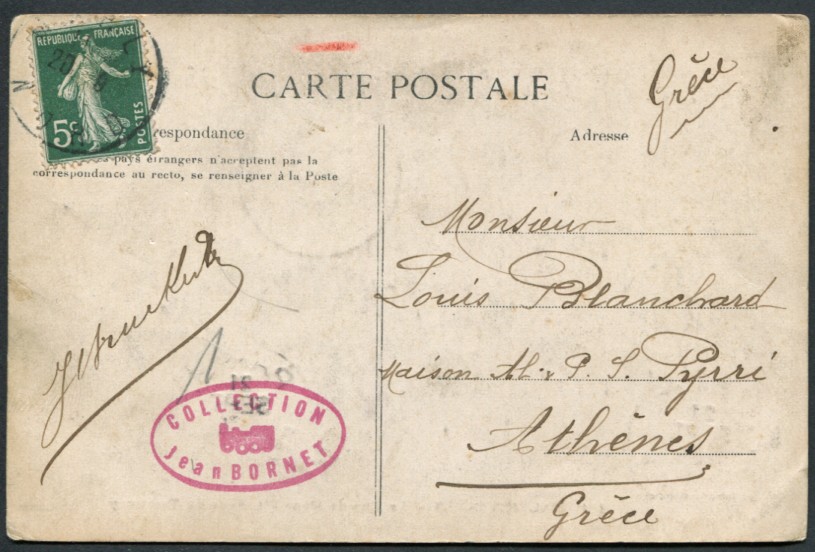 REPUBLIQUE FRANÇAISE
5c POSTES
CARTE POSTALE
Grèce
respondance
Adresse
pays étrangers n'acceptent pas la
correspondance au recto, se renseigner à la Poste
Monsieur
Louis Blanchard
Maison Al. & P. S. Pyrri
Athènes
Grèce
COLLECTION
Jean BORNET